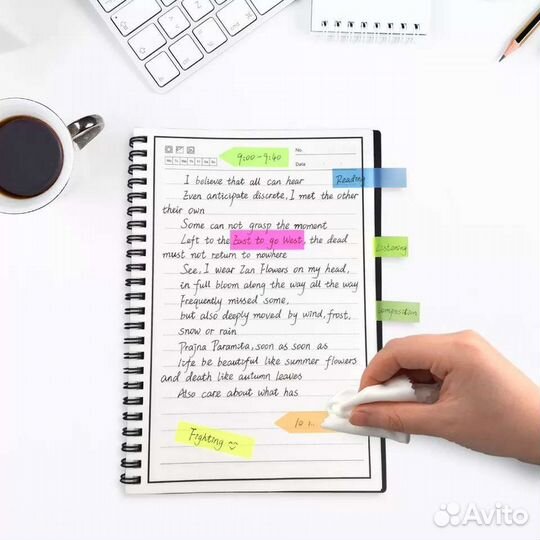 9:00-9:40
No.
Mo. Tu. We. Th. Fr. Sa. Su.
Date
Reading
I believe that all can hear
Even anticipate discrete, I met the other
their own
Some can not grasp the moment
Left to the East to go West, the dead
must not return to nowhere
Listening
See, I wear Zan Flowers on my head,
in full bloom along the way all the way
Frequently missed some,
but also deeply moved by wind, frost,
snow or rain
Composition
Prajna Paramita, soon as soon as
life be beautiful like summer flowers
and death like autumn leaves
Also care about what has
10
Fighting
Avito